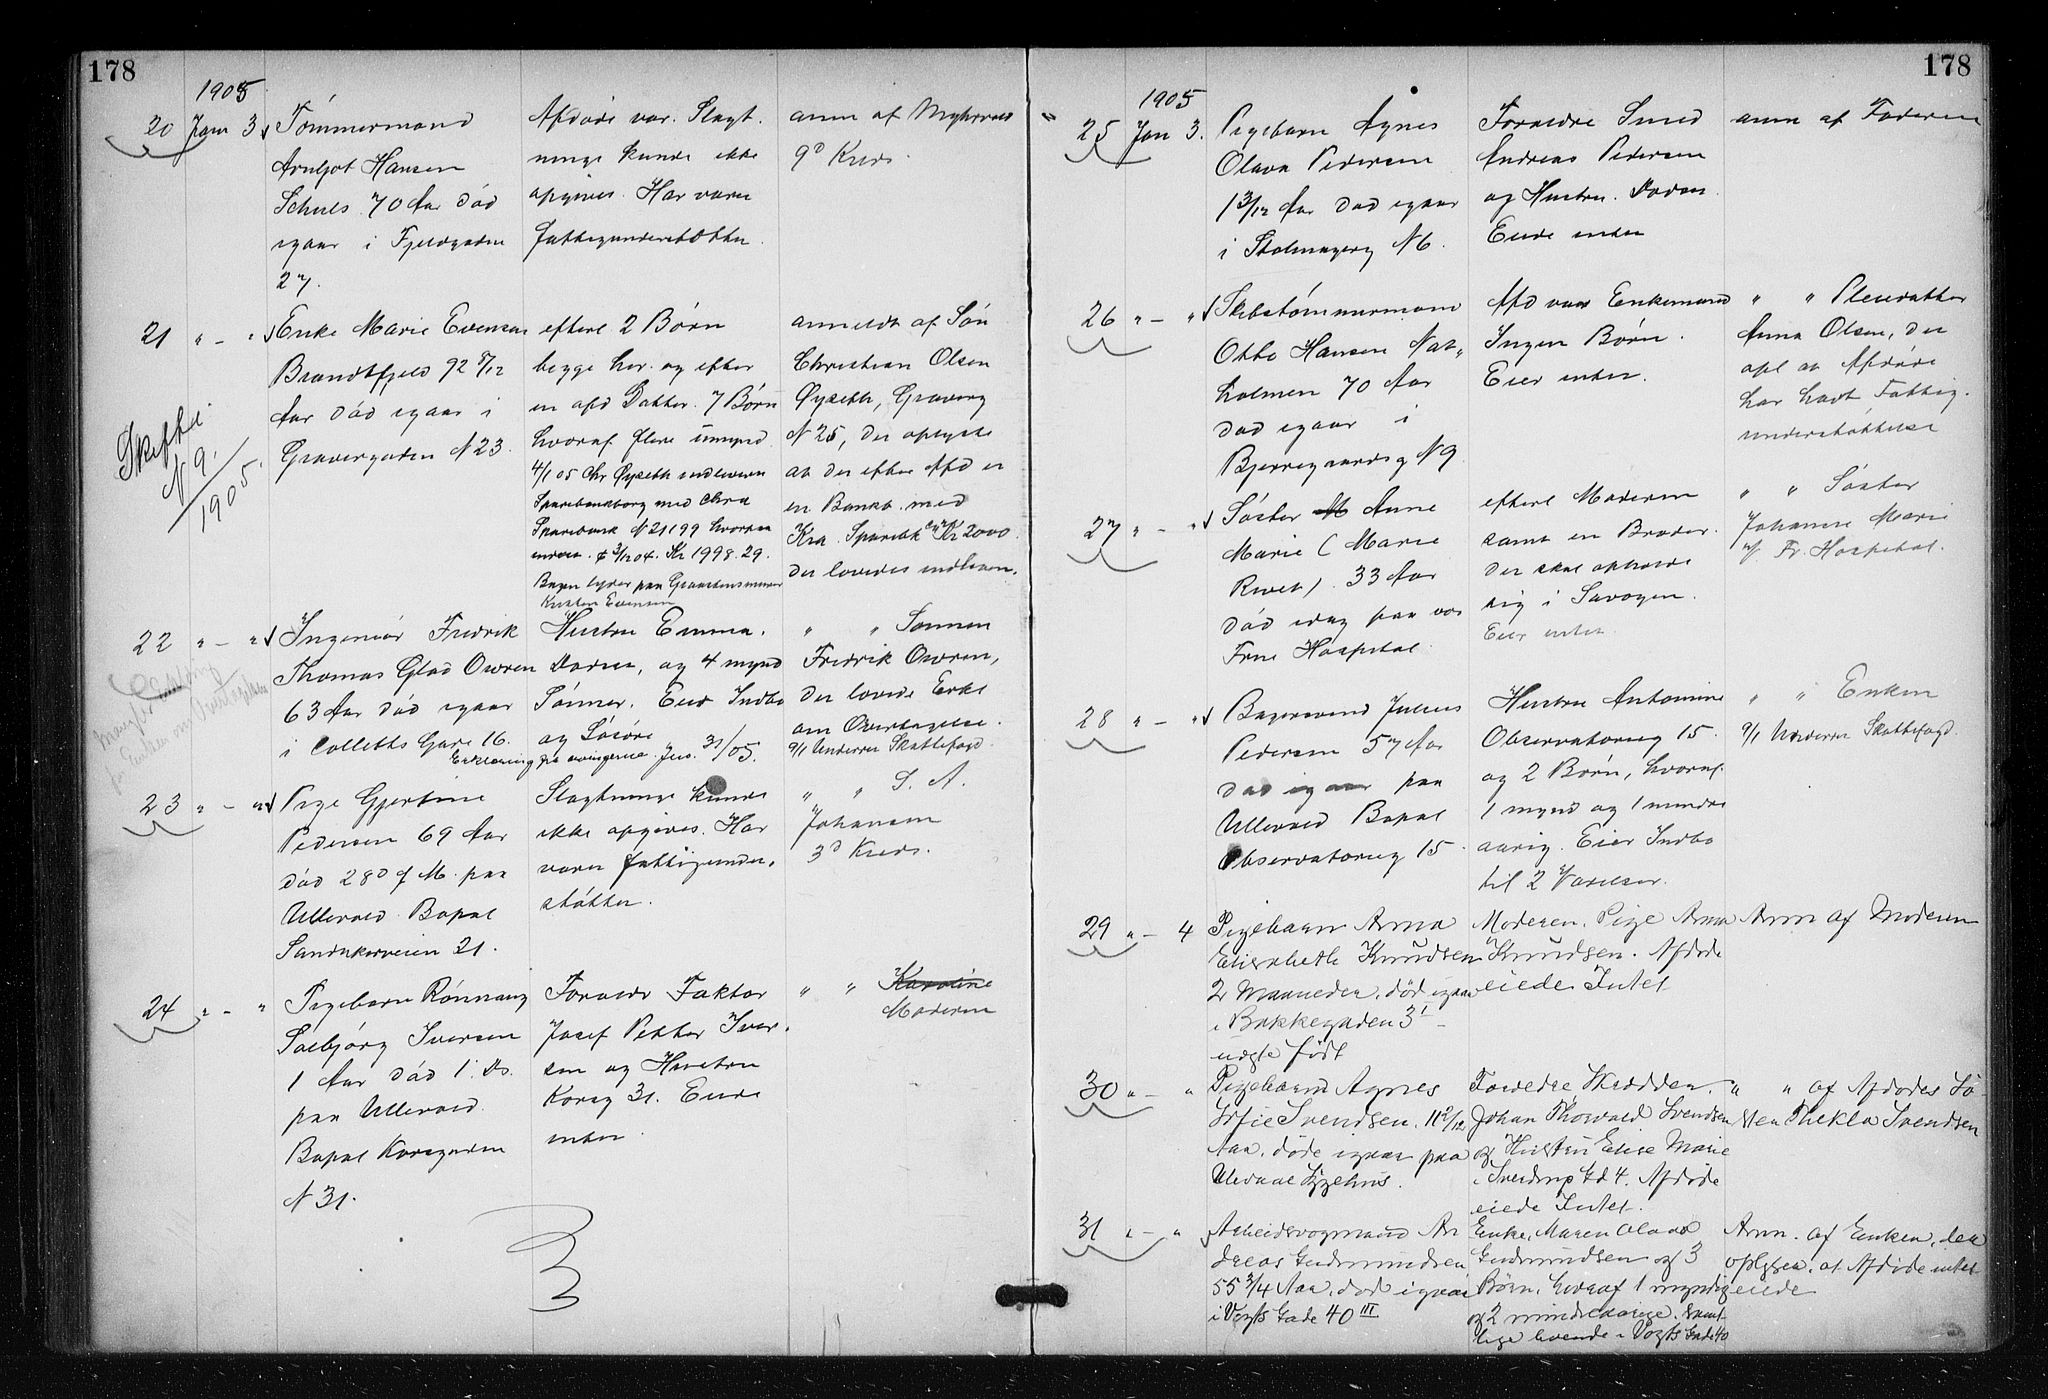 178
1905
20 Jan 3
Tømmermand
Arnljot Hansen
Schuls 70 Aar død
igaar i Fjeldgaden
27.
Afdøde var. Slægt.
ninge kunde ikke
opgives. Har været
fattigunderstøttet.
anm af Myhrvold
9d Kreds.
21 " - "
Enke Marie Evensen
Brandtfjeld 92 8/12
Aar død igaar i
Gravergaden N 23.
Skifte
N 9.
1905.
efterl 2 Børn
begge her. og efter
en afd Datter. 7 Børn
hvoraf flere umynd
4/1 05 Chr Øyseth indleverer
Sparebankbog med Chra
Sparebank N 21199 hvorpaa
indest. 3/12 04. Kr 1998.29.
Bogen lyder paa Graastensminer
Kristian Evensen
anmeldt af Søn
Christian Olsen
Øyseth, Graverg
N 25, der oplyste
at der efter Afd er
en Bankb. med
Kra. Sparebk ca Kr 2000.
der lovedes indlever.
22 " - "
Ingeniør Fredrik
Thomas Glad Owren
63 Aar død igaar
i Colletts Gade 16.
Hustru Emma.
Dødsa, og 4 mynd
Sønner. Eier Indbo
og Løsøre
Erklæring fra arvingerne. Jno. 31/05.
" " Sønnen
Fredrik Owren,
der lovede Erkl
om Overtagelse.
9/1 Underr Skattefogd.
23 " - "
Pige Gjertine
Pedersen 69 Aar
død 28d f M. paa
Ullevaal Bopæl
Sandakerveien 21.
Slægtninge kunde
ikke opgives. Har
været fattigunder,
støttet.
" " S. A.
Johansen
3d Kreds.
24 " - "
Pigebarn Rønnaug
Solbjørg Iversen
1 Aar død 1. Ds.
paa Ullevaal.
Bopæl Korsgaden
N 31.
Forældr Faktor
Josef Petter Iver,
sen og Hustru
Korsg 31. Eiede
intet.
" " Karoline
Moderen
178
1905
25 Jan 3.
Pigebarn Agnes
Olava Pedersen
1 3/12 Aar død igaar
i Stolmagerg N 6.
Forældre Smed
Andreas Pedersen
og Hustru. Dødsa.
Eiede intet
anm af Faderen
26 " - "
Skibstømmermand
Otto Hansen Nat,
holmen 70 Aar
død igaar i
Bjerregaardsg N 9
Afd var Enkemand
Ingen Børn.
Eier intet.
" " Pleiedatter
Anna Olsen, der
opl at Afdøde
har havt Fattig.
understøttelse
27 " - "
Søster Anne
Marie (Marie
Rivet) 33 Aar
død idag paa vor
Frue Hospital
efterl Moderen
samt en Broder.
der skal opholde
sig i Savoyen.
Eier intet.
" " Søster
Johanne Marie
v/ Fr. Hospital.
28 " - "
Bagersvend Julius
Pedersen 57 Aar
død igaar paa
Ullevaal Bopæl
Observatorieg 15.
Hustru Antonine
Observatorieg 15.
og 2 Børn, hvoraf.
1 mynd og 1 mindre
aarig. Eier Indbo
til 2 Værelser.
" " Enken
9/1 Underr Skattefogd.
29 " - 4
Pigebarn Anna
Elisabeth Knudsen
2 Maaneder, død igaar
i Bakkegaden 3 I -
uægte født
Moderen, Pige Anna
Knudsen. Afdøde
eiede Intet
Anm af Moderen
30 " - "
Pigebarn Agnes
Sofie Svendsen, 11 2/12
Aar, døde igaar paa
Ulevaal Sygehus.
Forældre Skrædder.
Johan Thorvald Svendsen
og Hustru Elise Marie
i Sverdrup Gd 4. Afdøde
eiede Intet.
" " af Afdødes Sø-
ster Thekla Svendsen
31 " - "
Arbeidsvogmand An
dreas Gudmundsen
55 3/4 Aar, død igaar
i Vogts Gade 40 III
Enke, Maren Olava
Gudmundsen og 3
Børn, hvoraf 1 myndig
og 2 mindreaarige. Samt
lige boende i Vogts Gade 40
Anm. af Enken, der
oplyser, at Afdøde intet
eiede